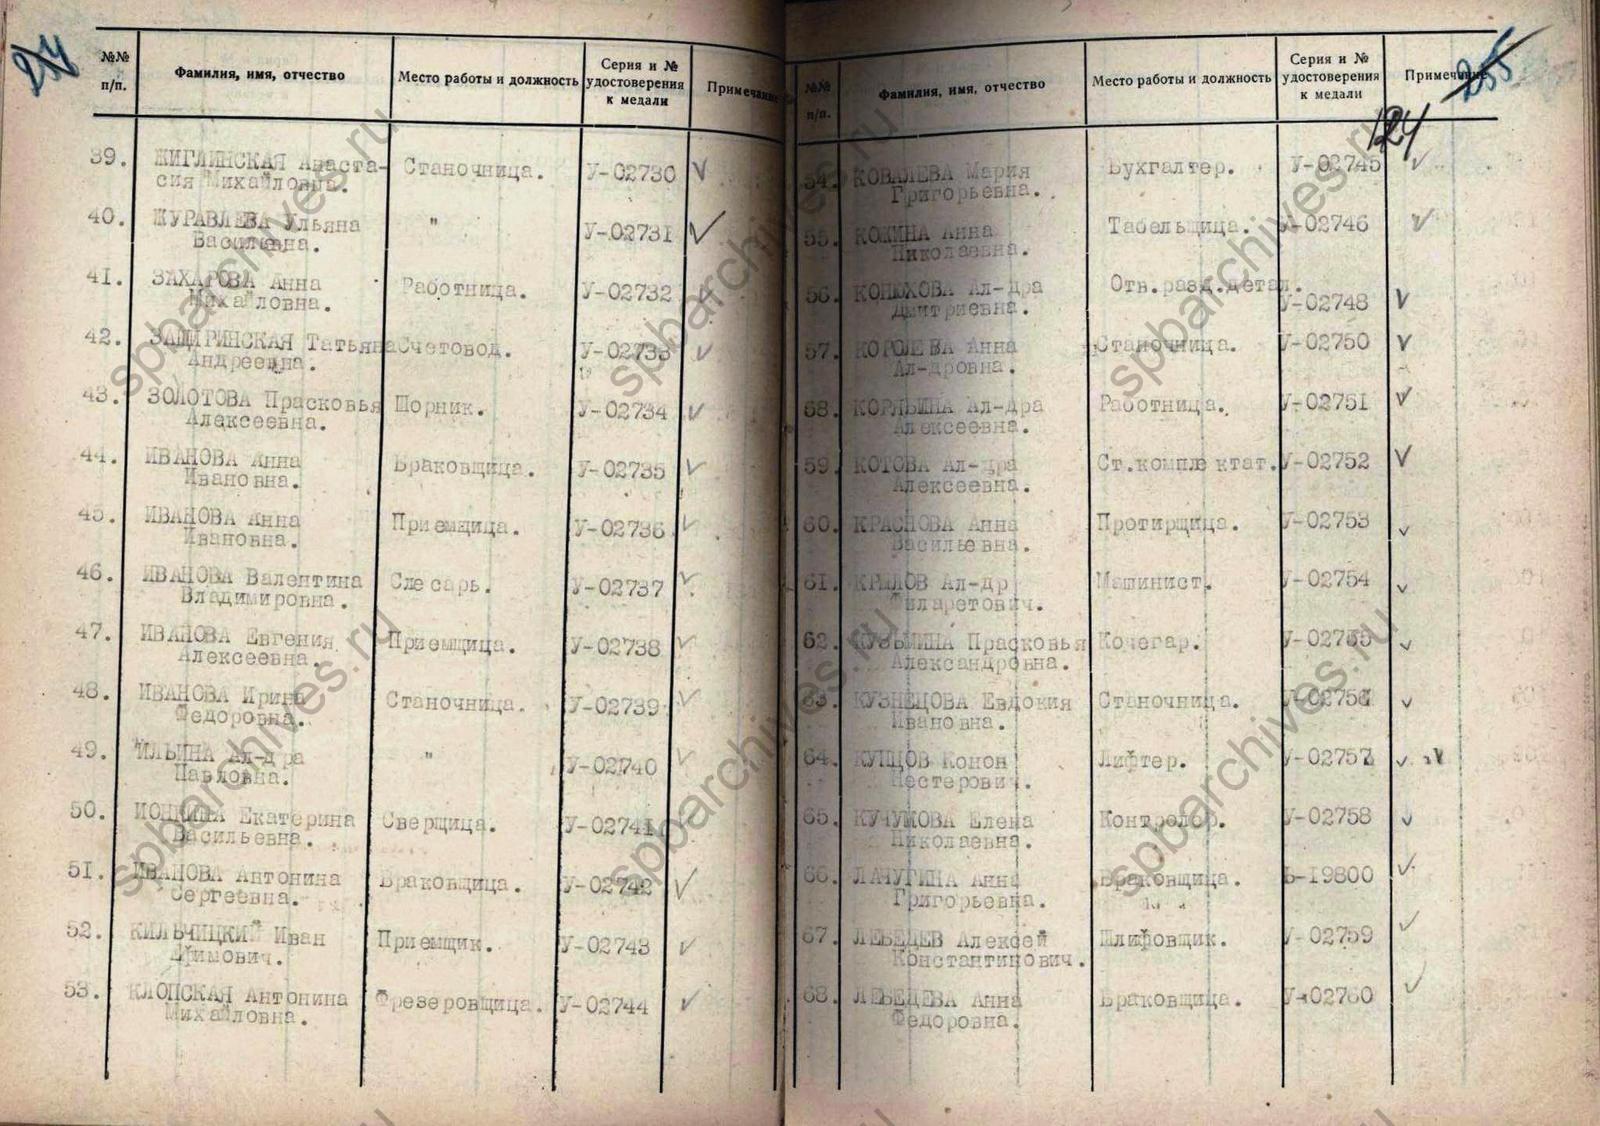 254
№№ п/п.
Фамилия, имя, отчество
Место работы и должность
Серия и № удостоверения к медали
Примечание
39. ЖИГЛИНСКАЯ Анаста- Станочница. У-02730
сия Михайловна.
40. ЖУРАВЛЕВА Ульяна " У-02731
Васильевна.
41. ЗАХАРОВА Анна Работница. У-02732
Михайловна.
42. ЗАЩИРИНСКАЯ Татьяна Счетовод. У-02733
Андреевна.
43. ЗОЛОТОВА Прасковья Шорник. У-02734
Алексеевна.
44. ИВАНОВА Анна Браковщица. У-02735
Ивановна.
45. ИВАНОВА Анна Приемщица. У-02736
Ивановна.
46. ИВАНОВА Валентина Слесарь. У-02737
Владимировна.
47. ИВАНОВА Евгения Приемщица. У-02738
Алексеевна.
48. ИВАНОВА Ирина Станочница. У-02739
Федоровна.
49. ИЛЬИНА Ал-дра " У-02740
Павловна.
50. Екатерина Сверщица. У-02741
Васильевна.
51. ИВАНОВА Антонина Браковщица. У-02742
Сергеевна.
52. КИЛЬЧИЦКИЙ Иван Приемщик. У-02743
Ефимович.
53. КЛОПСКАЯ Антонина Фрезеровщица. У-02744
Михайловна.
255
№№ п/п.
Фамилия, имя, отчество
Место работы и должность
Серия и № удостоверения к медали
Примечание
124
54. КОВАЛЕВА Мария Бухгалтер. У-02745
Григорьевна.
55. Анна Табельщица. У-02746
Николаевна.
56. КОНЮХОВА Ал-дра Отв.разд.детал. У-02748
Дмитриевна.
57. КОРОЛЕВА Анна Станочница. У-02750
Ал-дровна.
58. Ал-дра Работница. У-02751
Алексеевна.
59. КОТОВА Ал-дра Ст.комплектат. У-02752
Алексеевна.
60. КРАСНОВА Анна Протирщица. У-02753
Васильевна.
61. КРЫЛОВ Ал-др Машинист. У-02754
Филаретович.
62. КУЗЬМИНА Прасковья Кочегар. У-02755
Александровна.
63. КУЗНЕЦОВА Евдокия Станочница. У-02756
Ивановна.
64. КУПЦОВ Конон Лифтер. У-02757
Нестерович.
65. КУЧУМОВА Елена Контролер. У-02758
Николаевна.
66. ЛАЧУГИНА Анна Браковщица. Б-19800
Григорьевна.
67. ЛЕБЕДЕВ Алексей Шлифовщик. У-02759
Константинович.
68. ЛЕБЕДЕВА Анна Браковщица. У-02760
Федоровна.
spbarchives.ru
spbarchives.ru
spbarchives.ru
spbarchives.ru
spbarchives.ru
spbarchives.ru